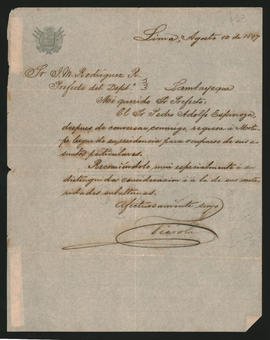 Lima, Agosto 10 de 1897
Sr J. M. Rodriguez R.
Prefecto del Dept.
Lambayeque
Mi querido Sr Prefecto:
El Sr Pedro Adolfo Espinoza,
despues de conversar conmigo, regresa á
lugar de su residencia para ocuparse de sus a-
suntos particulares.
Recomiéndole muy especialmente á su
distinguida consideracion i á la de sus auto-
ridades subalternas.
Afectuosamente suyo
Piérola